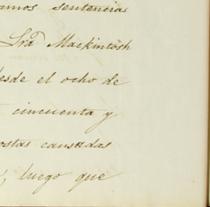 amos sentencia
Sra Mackintosh
desde el ocho de
cincuenta y
ostas causadas
luego que